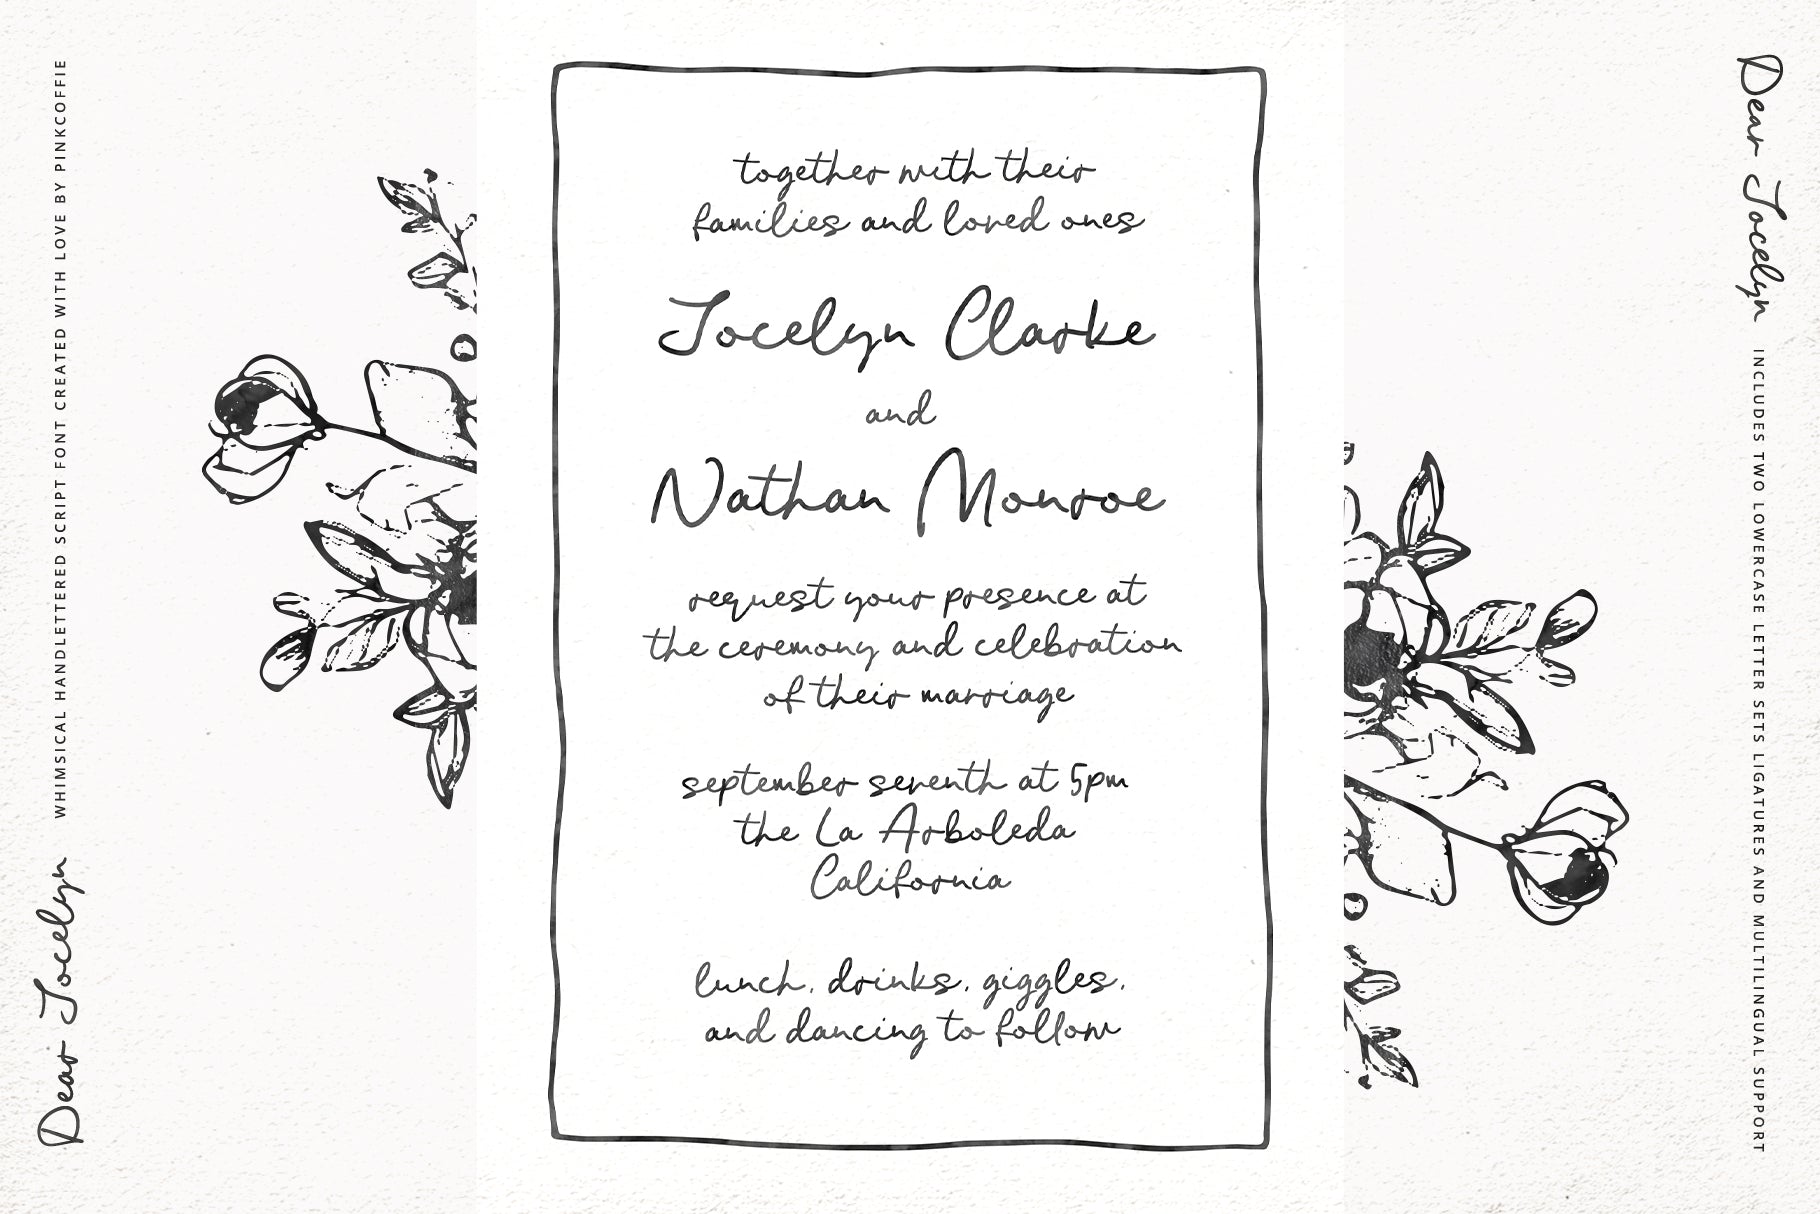 Dear Jocelyn WHIMSICAL HANDLETTERED SCRIPT FONT CREATED WITH LOVE BY PINKCOFFIE
together with their
families and loved ones
Jocelyn Clarke
and
Nathan Monroe
request your presence at
the ceremony and celebration
of their marriage
september seventh at 5pm
the La Arboleda
California
lunch, drinks, giggles,
and dancing to follow
Dear Jocelyn INCLUDES TWO LOWERCASE LETTER SETS LIGATURES AND MULTILINGUAL SUPPORT